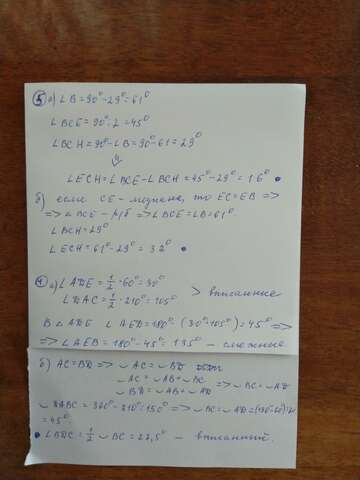 5 а) ∠B=90°-29°=61°
∠BCE=90°:2=45°
∠BCH=90°-∠B=90°-61=29°
⇓
∠ECH=∠BCE-∠BCH=45°-29°=16°
б) если CE-медиана, то EC=EB =>
=> ∠BCE - р/б => ∠BCE=∠B=61°
∠BCH=29°
∠ECH=61°-29°=32°
4 а) ∠ADE=1/2·60°=30°
∠DAC=1/2·210°=105° > вписанные
В ∠ADE ∠AED=180°-(30°+105°)=45° =>
=> ∠AEB=180°-45°=135° - смежные
б) AC=BD => ◡AC=◡BD
◡AC=◡AB+◡BC
◡BD=◡AB+◡AD => ◡BC=◡AD
◡DABC=360°-210°=150° => ◡BC=◡AD=(150°-60°):2=
=45°
∠BDC=1/2 ◡BC=22,5° - вписанный.